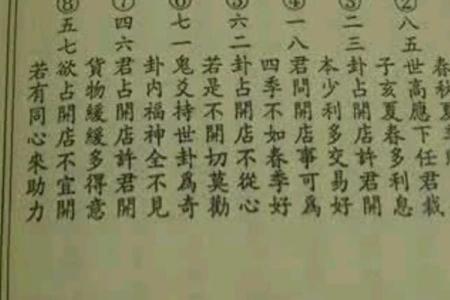 春秋夏
②八五世高應下任君裁
子亥夏春多利息
③二三卦占開店許君開
本少利多交易好
④一八君問開店事可為
四季不如春季好
⑤六二卦占開店不從心
若是不開切莫勸
⑥七一鬼爻持世卦為奇
卦內福神全不見
⑦四六君占開店許君開
貨物緩緩多得意
⑧五七欲占開店不宜開
若有同心來助力